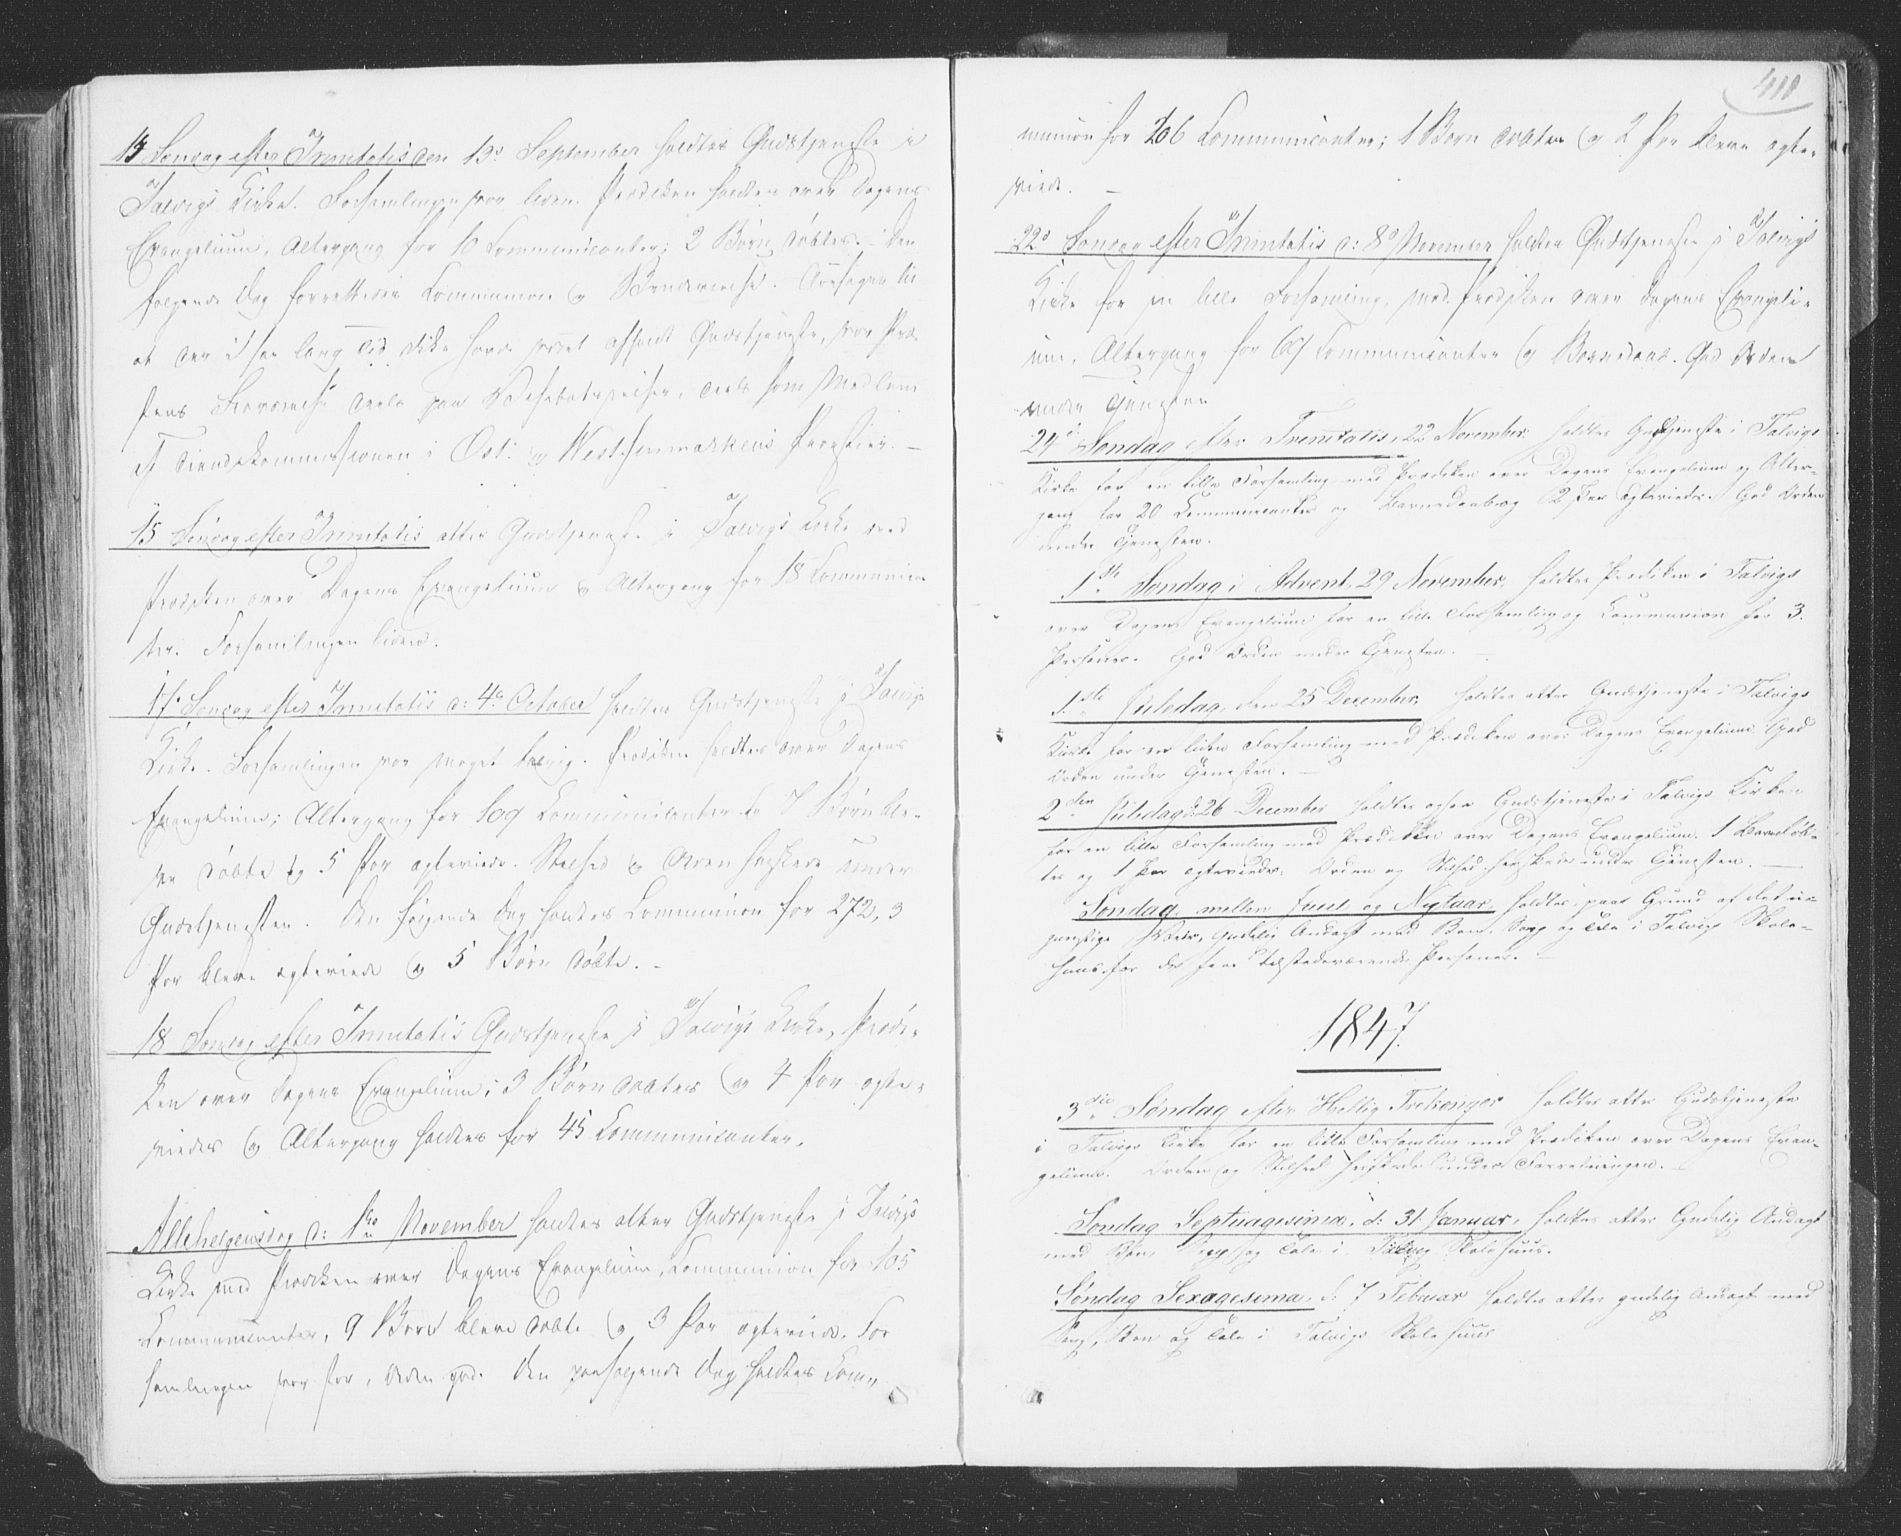 13 Søndag efter Trinitatis den 13de September holdtes Gudstjeneste i
Talvigs Kirke. Forsamlingen var liden. Prædiken holdtes over Dagens
Evangelium, Altergang for 10 Communicanter; 2 Børn døbtes. Den
følgende Dag forrettedes Communion og Brudevielse. Aarsagen til
at der i saa lang Tid ikke havde været afholdt Gudstjeneste, var Præ-
stens Fraværelse deels paa Visitatsreiser, deels som Medlem
af Tiendekommissionen i Øst- og Vestfinmarkens Provstier. —
15 Søndag efter Trinitatis atter Gudstjeneste i Talvigs Kirke med
Prædiken over Dagens Evangelium og Altergang for 18 Communican-
ter. Forsamlingen liden.
17 Søndag efter Trinitatis d: 4de October holdtes Gudstjeneste i Talvigs
Kirke. Forsamlingen var meget talrig. Prædiken holdtes over Dagens
Evangelium; Altergang for 109 Communicanter; 7 Børn ble-
ve døbte og 5 Par ægteviede. Stilhed og Orden herskede under
Gudstjenesten. Den følgende Dag holdtes Communion for 272, 3
Par bleve ægteviede og 5 Børn døbte. —
18 Søndag efter Trinitatis Gudstjeneste i Talvigs Kirke, Prædi-
ken over Dagens Evangelium; 3 Børn døbtes og 4 Par ægte-
viedes og Altergang holdtes for 45 Communicanter.
Allehelgensdag d: 1ste November holdtes atter Gudstjeneste i Talvigs
Kirke med Prædiken over Dagens Evangelium, Communion for 105
Communicanter, 9 Børn bleve døbte og 3 Par ægteviede. For
samlingen var stor, Orden god. Den paafølgende Dag holdtes Com-
410
munion for 206 Communicanter; 1 Barn døbtes og 2 Par bleve ægte-
viede. —
22de Søndag efter Trinitatis d: 8de November holdtes Gudstjeneste i Talvigs
Kirke for en lille Forsamling, med Prædiken over Dagens Evangeli-
um, Altergang for 69 Communicanter og Barnedaab. God Orden
under Tjenesten
24de Søndag efter Trinitatis, 22 November holdtes Gudstjeneste i Talvigs
Kirke for en lille Forsamling med Prædiken over Dagens Evangelium og Alter-
gang for 20 Communicanter og Barnedaab og 2 Par ægteviedes. God Orden
under Tjenesten.
1ste Søndag i Advent, 29 November, holdtes Prædiken i Talvigs
over Dagens Evangelium for en lille Forsamling og Communion for 3
Personer. God Orden under Tjenesten. —
1ste Juledag, den 25 December, holdtes atter Gudstjeneste i Talvigs
Kirke for en liden Forsamling med Prædiken over Dagens Evangelium. God
Orden under Tjenesten. —
2den Juledag d: 26 December holdtes ogsaa Gudstjeneste i Talvigs Kirke
for en lille Forsamling med Prædiken over Dagens Evangelium. 1 Barn døb-
tes og 1 Par ægteviedes. Orden og Stilhed herskede under Tjenesten. —
Søndag mellem Juul og Nytaar, holdtes, paa Grund af det u-
gunstige Veir, gudelig Andagt med Bøn, Sang og Tale i Talvigs Skole-
huus for de faae tilstedeværende Personer. —
1847.
3die Søndag efter Hellig Trekonger holdtes atter Gudstjeneste
i Talvigs Kirke for en lille Forsamling med Prædiken over Dagens Evan-
gelium. Orden og Stilhed herskede under Forretningen. —
Søndag Septuagesima, d: 31 Januar, holdtes atter Gudelig Andagt
med Bøn, Sang og Tale i Talvig Skolehuus.
Søndag Sexagesima, d: 7 Februar holdtes atter gudelig Andagt med
Sang, Bøn og Tale i Talvigs Skolehuus